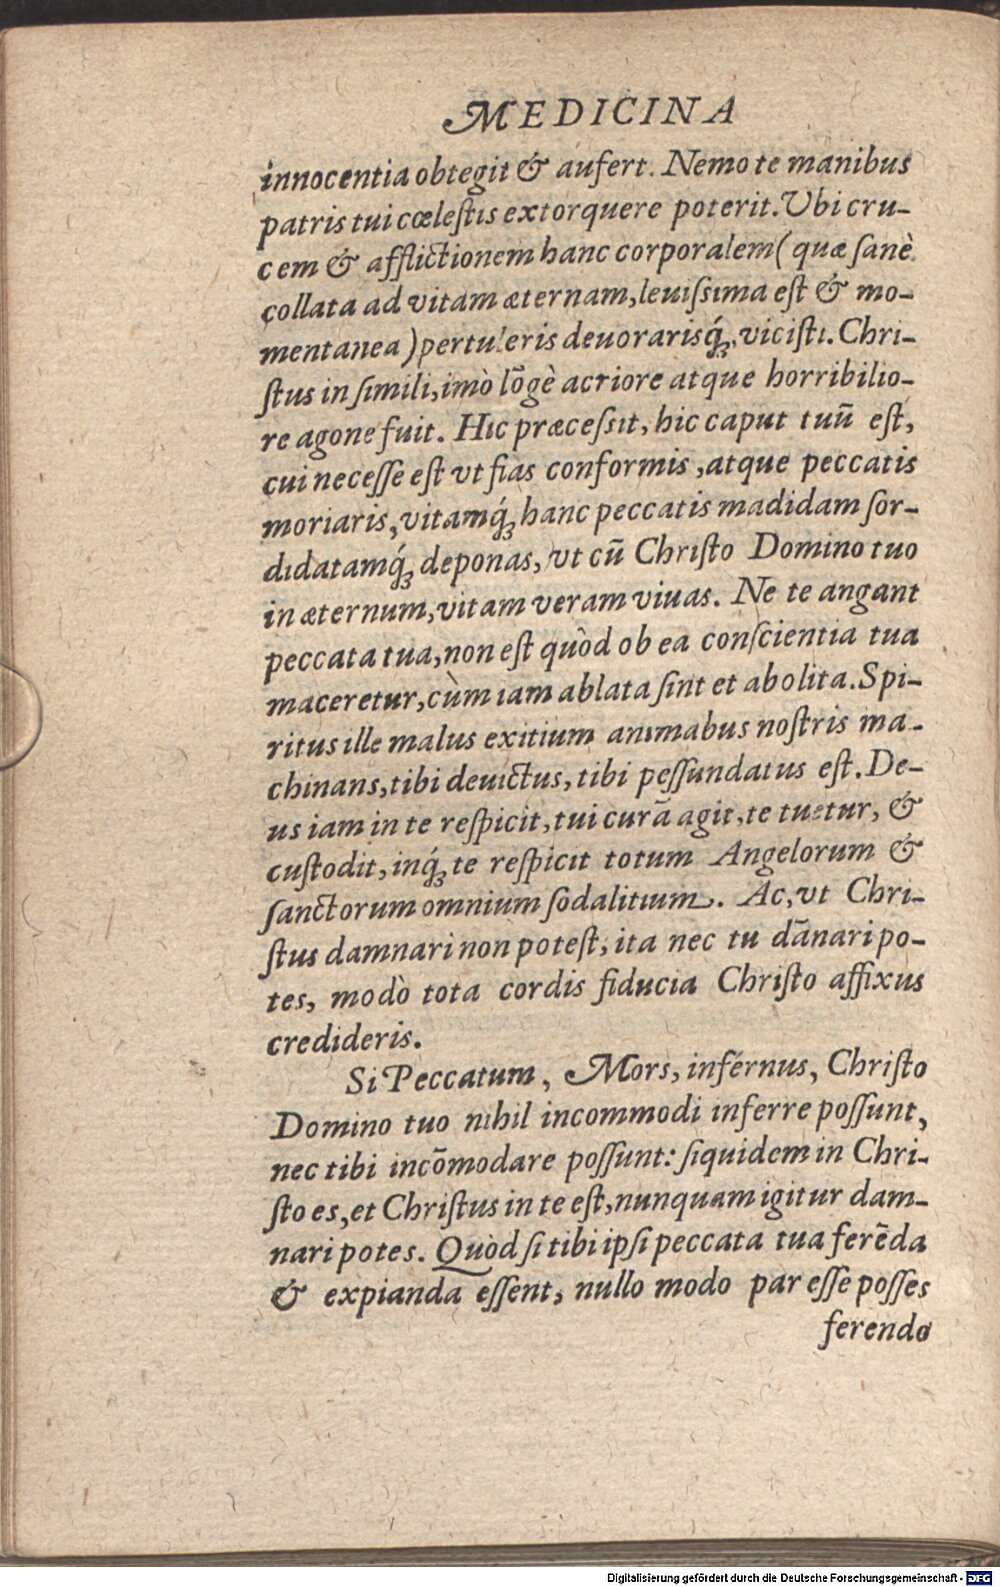 MEDICINA
innocentia obtegit & aufert. Nemo te manibus
patris tui cœleſtis extorquere poterit. Vbi cru-
cem & afflictionem hanc corporalem ( quæ ſanè
collata ad vitam æternam, leuiſsima eſt & mo-
mentanea ) pertuleris deuorarisq́ꝫ, viciſti. Chri-
ſtus in ſimili, imò lõgè acriore atque horribilio-
re agone fuit. Hic præceſsit, hic caput tuũ eſt,
cui neceſſe eſt vt fias conformis, atque peccatis
moriaris, vitamq́ꝫ hanc peccatis madidam ſor-
didatamq́ꝫ deponas, vt cũ Chriſto Domino tuo
in æternum, vitam veram viuas. Ne te angant
peccata tua, non eſt quòd ob ea conſcientia tua
maceretur, cùm iam ablata ſint et abolita. Spi-
ritus ille malus exitium animabus noſtris ma-
chinans, tibi deuictus, tibi peſſundatus eſt. De-
us iam in te reſpicit, tui curã agit, te tuetur, &
cuſtodit, inq́ꝫ te reſpicit totum Angelorum &
ſanctorum omnium ſodalitium. Ac, vt Chri-
ſtus damnari non poteſt, ita nec tu dãnari po-
tes, modò tota cordis fiducia Chriſto affixus
credideris.
Si Peccatum, Mors, inférnus, Chriſto
Domino tuo nihil incommodi inferre poſſunt,
nec tibi incõmodare poſſunt: ſiquidem in Chri-
ſto es, et Chriſtus in te eſt, nunquam igitur dam-
nari potes. Quòd ſi tibi ipſi peccata tua ferẽda
& expianda eſſent, nullo modo par eſſe poſſes
ferendo
Digitalisierung gefördert durch die Deutsche Forschungsgemeinschaft - DFG